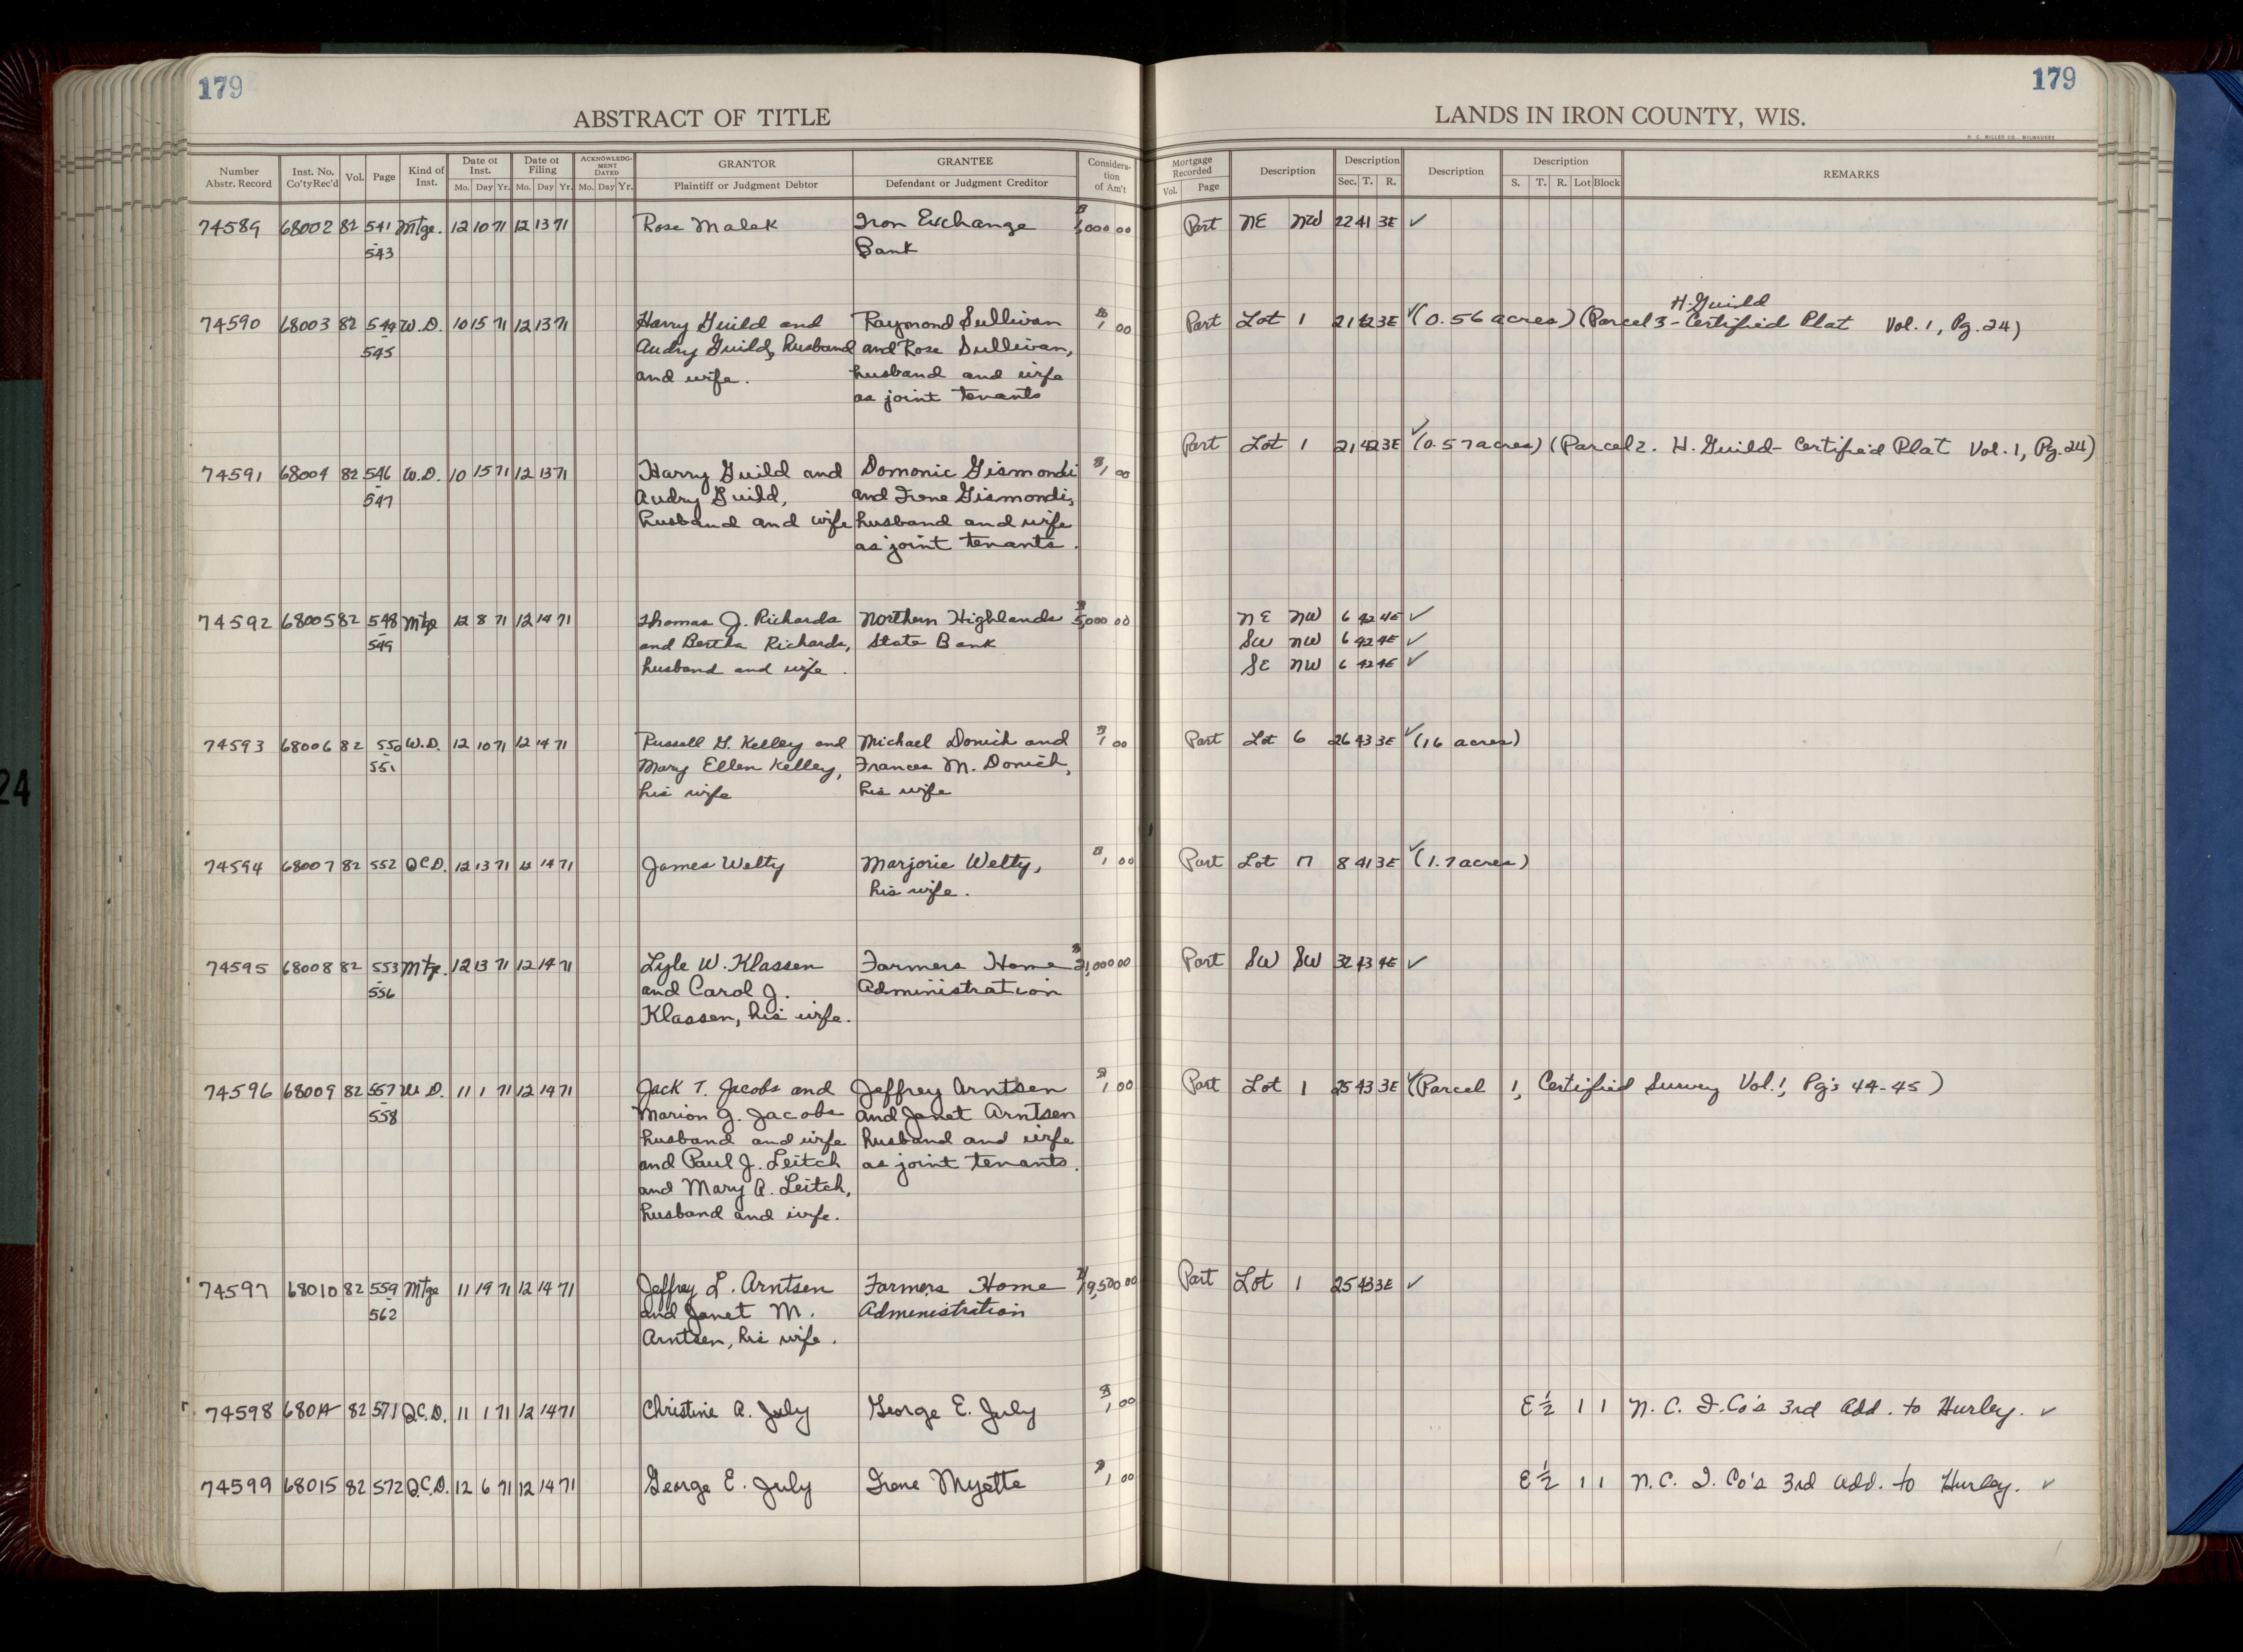 179
179
ABSTRACT OF TITLE
LANDS IN IRON COUNTY, WIS.
H. C. MILLER CO., MILWAUKEE
Number Abstr. Record Inst. No. Co'tyRec'd Vol. Page Kind of Inst. Date of Inst. Mo. Day Yr. Date of Filing Mo. Day Yr. ACKNOWLEDGMENT DATED Mo. Day Yr. GRANTOR Plaintiff or Judgment Debtor GRANTEE Defendant or Judgment Creditor Consideration of Am't
Mortgage Recorded Vol. Page Description Description Sec. T. R. Description Description S. T. R. Lot Block REMARKS
74589 68002 82 541 Mtge. 12 10 71 12 13 71 Rose Malek Iron Exchange 000 00 Part NE NW 22 41 3E ✓
- 543 Bank
H. Guild
74590 68003 82 544 W.D. 10 15 71 12 13 71 Harry Guild and Raymond Sullivan $1 00 Part Lot 1 21 42 3E ✓ (0.56 acres) (Parcel 3 - Certified Plat Vol. 1, Pg. 24)
- 545 Audry Guild, husband and Rose Sullivan,
and wife. husband and wife
as joint tenants
Part Lot 1 21 42 3E ✓ (0.57 acres) (Parcel 2. H. Guild - Certified Plat Vol. 1, Pg. 24)
74591 68004 82 546 W.D. 10 15 71 12 13 71 Harry Guild and Domonic Gismondi $1 00
- 547 Audry Guild, and Irene Gismondi,
husband and wife husband and wife
as joint tenants.
74592 68005 82 548 Mtge 12 8 71 12 14 71 Thomas J. Richards Northern Highlands $5,000 00 NE NW 6 42 4E ✓
- 549 and Bertha Richards, State Bank SW NW 6 42 4E ✓
husband and wife. SE NW 6 42 4E ✓
74593 68006 82 550 W.D. 12 10 71 12 14 71 Russell G. Kelley and Michael Donich and $1 00 Part Lot 6 26 43 3E ✓ (16 acres)
- 551 Mary Ellen Kelley, Frances M. Donich,
his wife his wife
74594 68007 82 552 Q.C.D. 12 13 71 12 14 71 James Welty Marjorie Welty, $1 00 Part Lot 7 8 41 3E ✓ (1.7 acres)
his wife.
74595 68008 82 553 Mtge. 12 13 71 12 14 71 Lyle W. Klassen Farmers Home $21,000 00 Part SW SW 32 43 4E ✓
- 556 and Carol J. Administration
Klassen, his wife.
74596 68009 82 557 W.D. 11 1 71 12 14 71 Jack T. Jacobs and Jeffrey Arntsen $1 00 Part Lot 1 25 43 3E ✓ (Parcel 1, Certified Survey Vol. 1, Pg's 44-45)
- 558 Marion J. Jacobs and Janet Arntsen
husband and wife husband and wife
and Paul J. Leitch as joint tenants.
and Mary A. Leitch,
husband and wife.
74597 68010 82 559 Mtge 11 19 71 12 14 71 Jeffrey L. Arntsen Farmers Home $19,500 00 Part Lot 1 25 43 3E ✓
- 562 and Janet M. Administration
Arntsen, his wife.
74598 68014 82 571 Q.C.D. 11 1 71 12 14 71 Christine A. July George E. July $1 00 E½ 1 1 N. C. I. Co's 3rd Add. to Hurley. ✓
74599 68015 82 572 Q.C.D. 12 6 71 12 14 71 George E. July Irene Myette $1 00 E½ 1 1 N. C. I. Co's 3rd Add. to Hurley. ✓
24